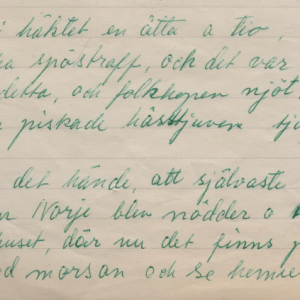 häktet en åtta a tio,
spöstraff, och det var
detta, och folkhopen njöt
piskade hästtjuven
det hände, att självaste
Norje blev nödder a
huset, där nu det finns
morsan och se henne